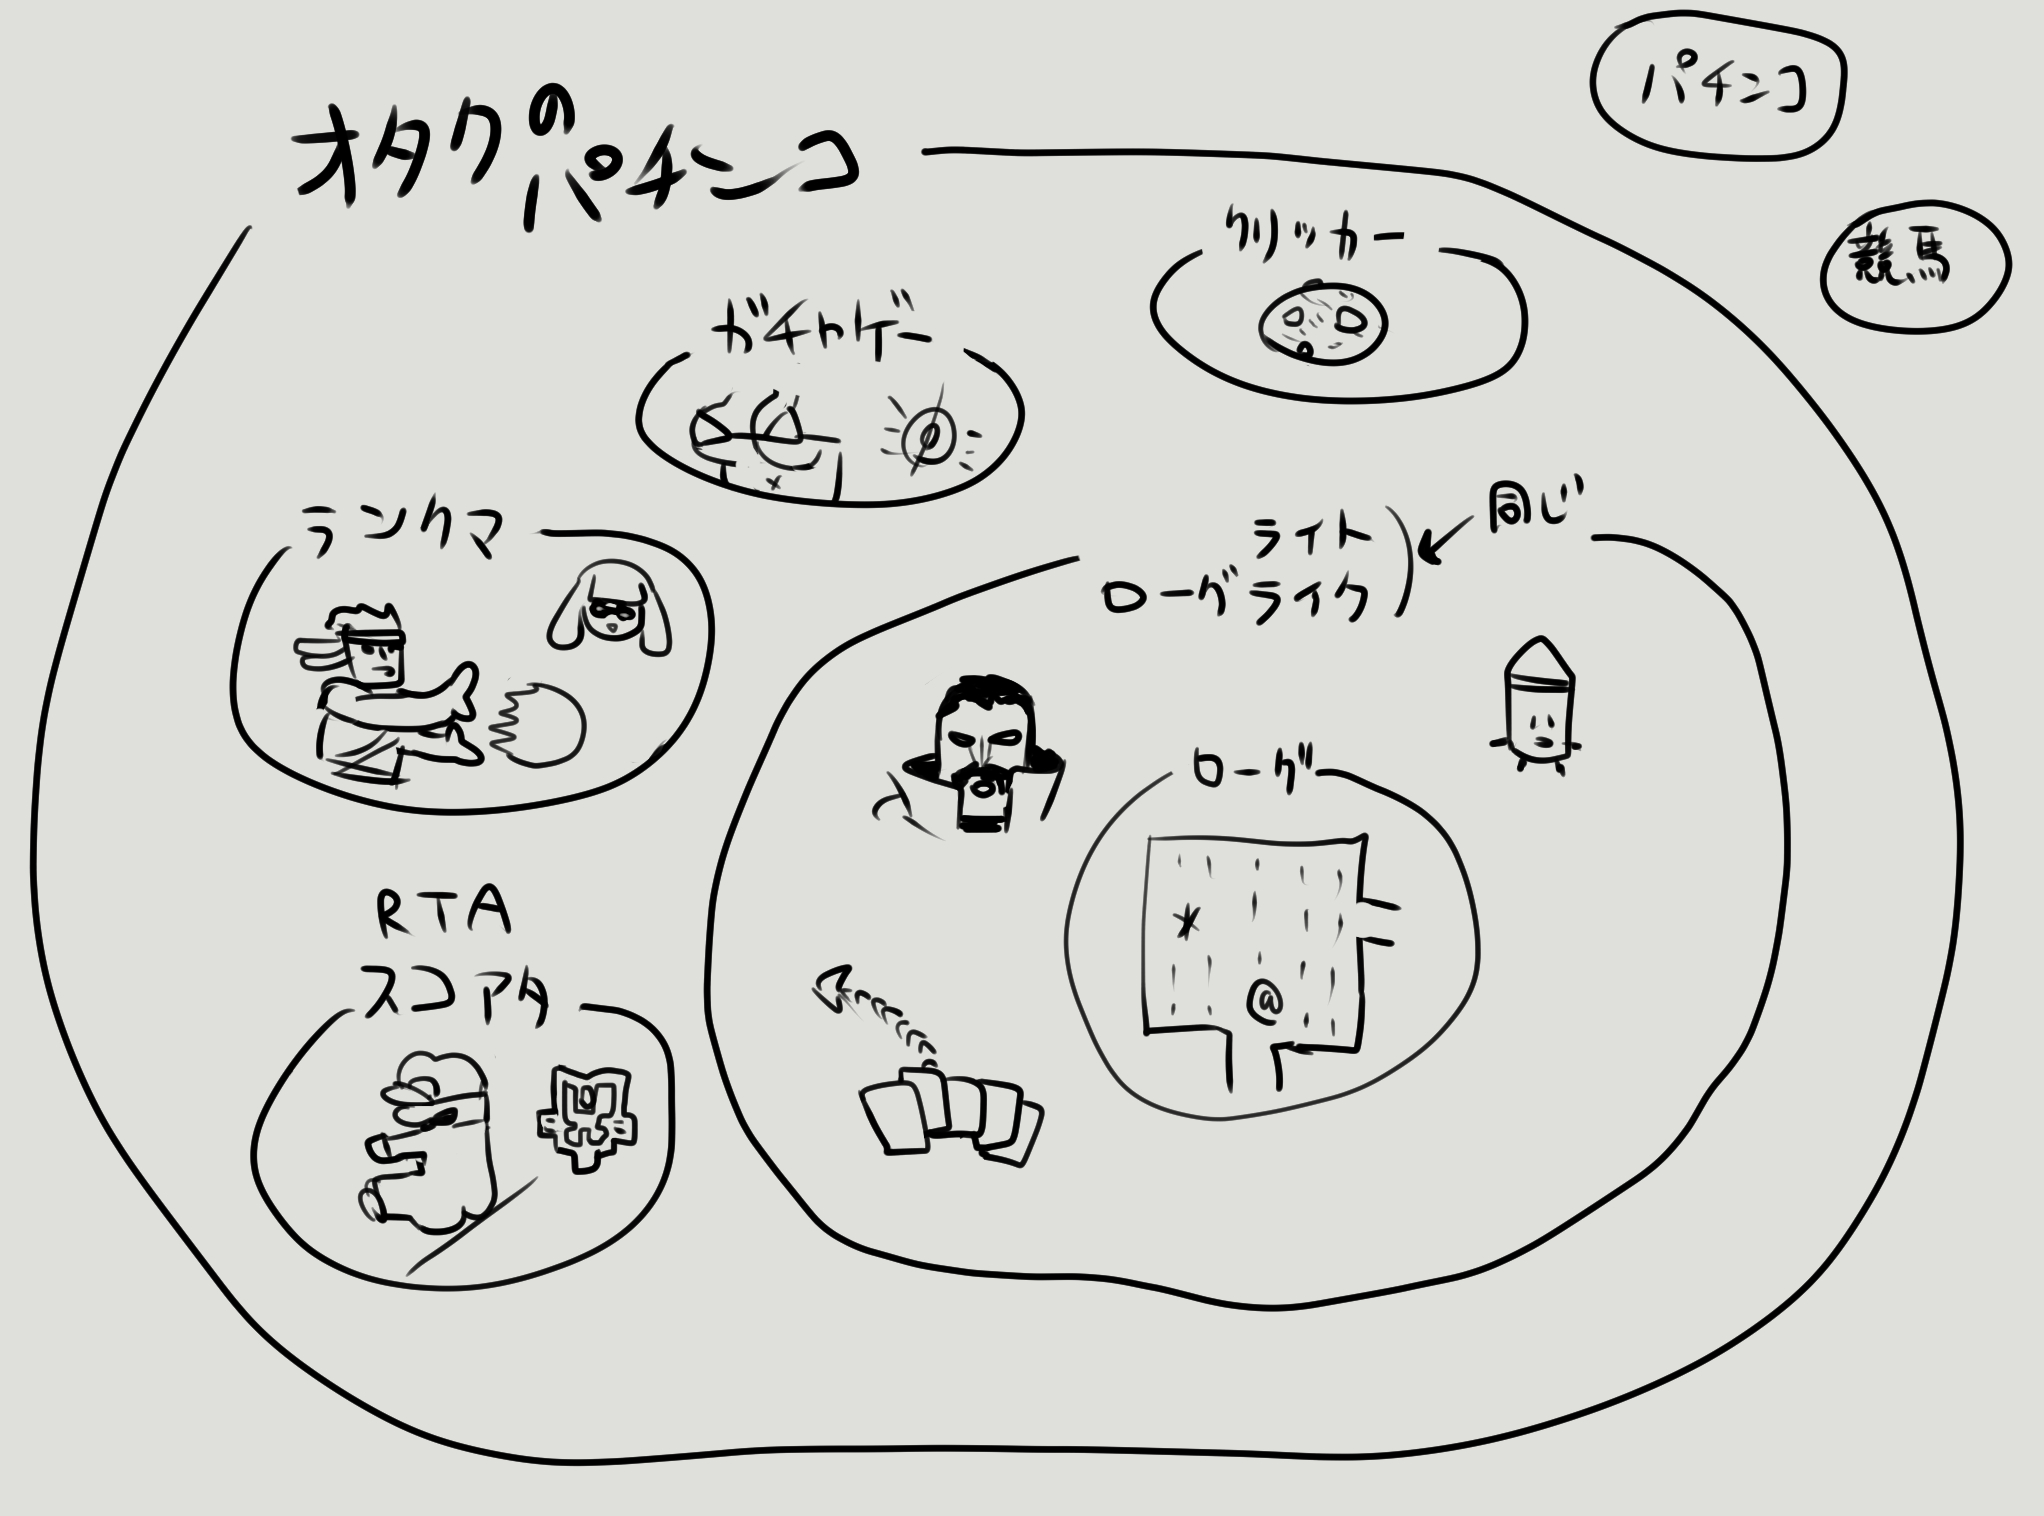 オタクの
パチンコ
パチンコ
競馬
クリッカー
ガチャゲー
ランクマ
ライト
ローグライク
同じ
ローグ
@
RTA
スコアタ